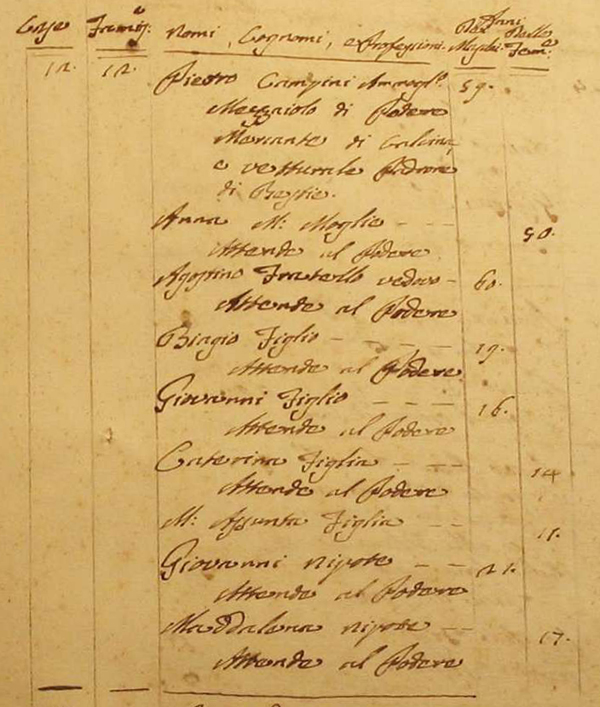 Case Famig: Nomi, Cognomi, e Professioni. Anni Dei Maschi. Delle Fem.e
12. 12. Pietro Campini Ammogl.º 59.
Mezzaiolo di Podere
Mercante di Calcina,
e vetturale Padrone
di Bestie.
Anna M: Moglie - - 50.
Attende al Podere
Agostino Fratello vedovo - 60.
Attende al Podere
Biagio Figlio - - - - 19.
Attende al Podere
Giovanni Figlio - - - 16.
Attende al Podere
Caterina Figlia - - - 14
Attende al Podere
M: Assunta Figlia - - 11.
Giovanni nipote - - 21.
Attende al Podere
Maddalena nipote - - 17.
Attende al Podere